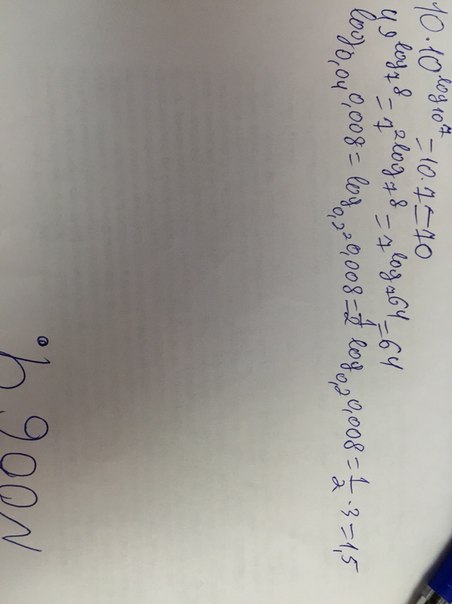 10·10^log₁₀7 = 10·7=70
49^log₇8 = 7^2log₇8 = 7^log₇64 = 64
log₀,₀₄ 0,008 = log₀,₂² 0,008 = 1/2 log₀,₂ 0,008 = 1/2 · 3 = 1,5